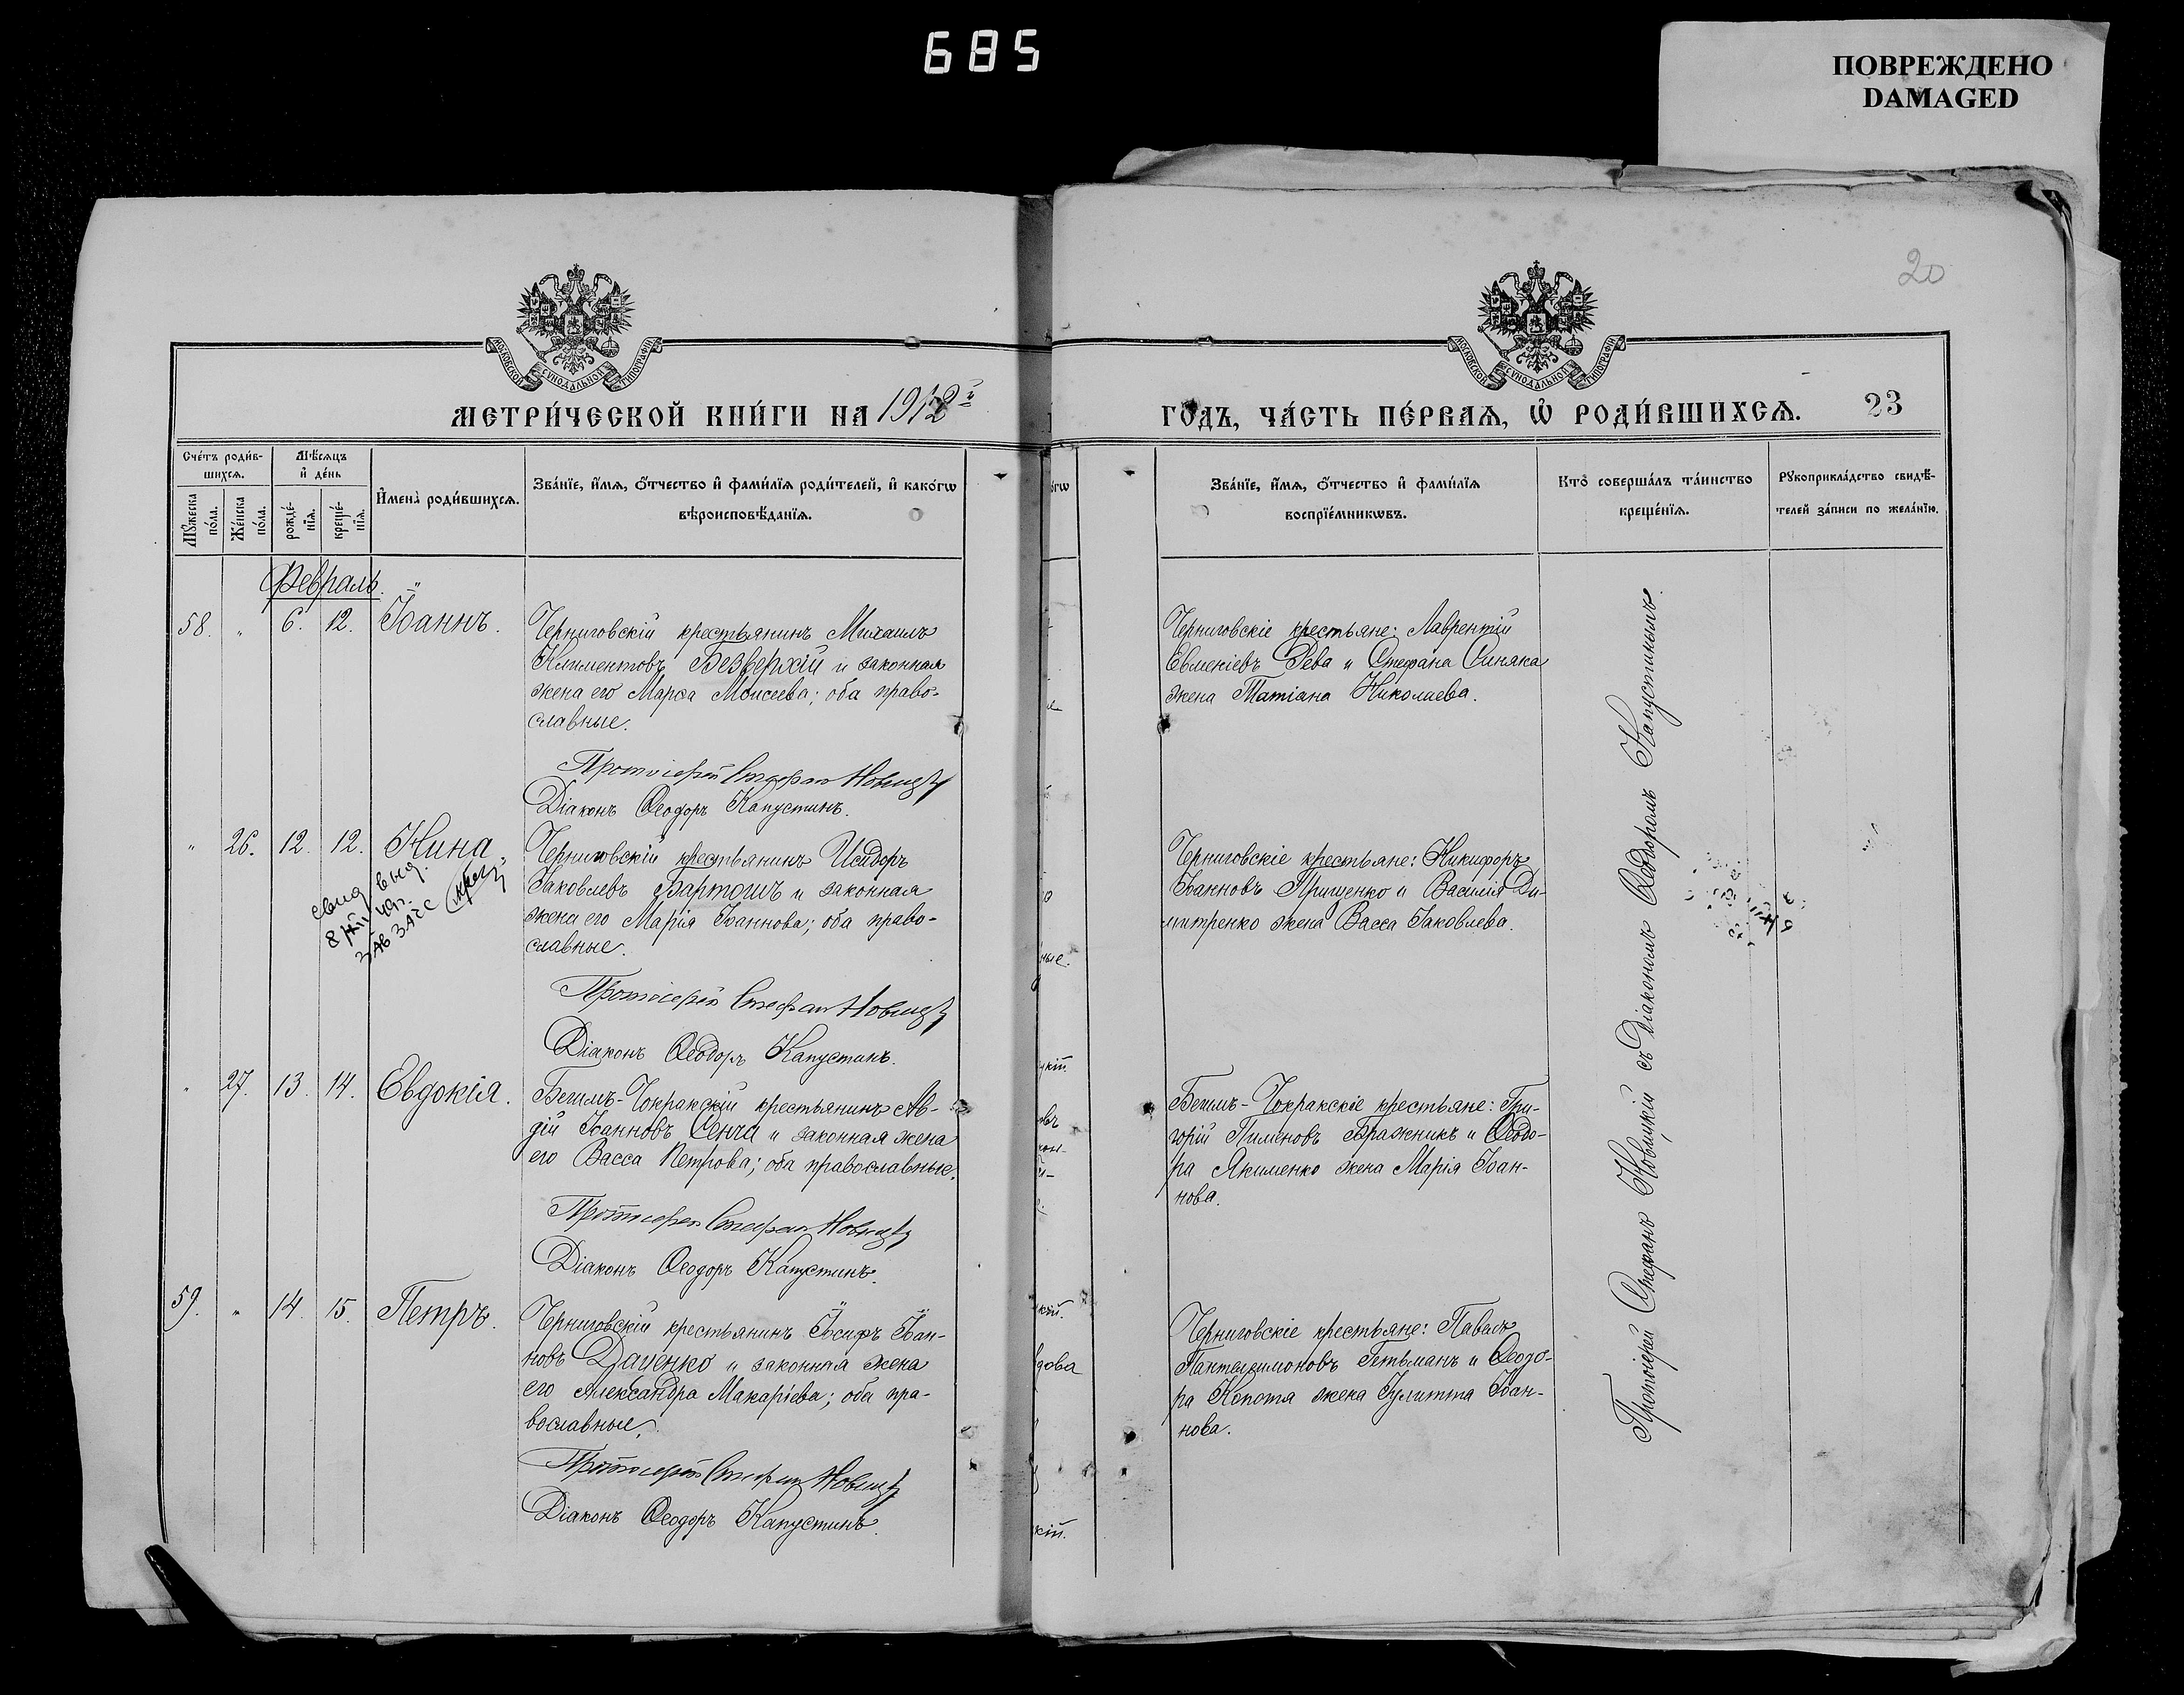 685
ПОВРЕЖДЕНО
DAMAGED
20
МОСКОВСКОЙ СѴНОДАЛЬНОЙ ТИПОГРАФІИ
МОСКОВСКОЙ СѴНОДАЛЬНОЙ ТИПОГРАФІИ
МЕТРИ́ЧЕСКОЙ КНИ́ГИ НА 1912й
ГО́ДЪ, ЧА́СТЬ ПЕ́РВАѦ, Ѽ РОДИ́ВШИХСѦ. 23
Сче́тъ роди́в-
шихсѧ.
Мꙋ́жеска по́ла.
Же́нска по́ла.
Мѣ́сѧцъ
и҆ де́нь
рожде́-
нїѧ.
креще́-
нїѧ.
И҆мена̀ роди́вшихсѧ.
Зва́нїе, и҆́мѧ, ѻ҆́тчество и҆ фами́лїѧ роди́телей, и҆ како́гѡ
вѣроисповѣ́данїѧ.
Зва́нїе, и҆́мѧ, ѻ҆́тчество и҆ фами́лїѧ
воспрїе́мникѡвъ.
Кто̀ соверша́лъ та́инство
креще́нїѧ.
Рꙋкоприкла́дство свидѣ́-
телей за́писи по жела́нїю.
Февраль.
58. „ 6. 12. Іоаннъ.
Черниговскій крестьянинъ Михаилъ
Климентовъ Безверхій и законная
жена его Марѳа Моисеева; оба право-
славные.
Протоіерей Стефан Новицкій
Діаконъ Ѳеодоръ Капустинъ.
Черниговскіе крестьяне: Лаврентій
Евменіевъ Рева и Стефана Синяка
жена Татіана Николаева.
„ 26. 12. 12. Нина
свид. выд.
ЗАВ ЗАГС
Черниговскій крестьянинъ Исидоръ
Іаковлевъ Бартошъ и законная
жена его Марія Іоаннова; оба право-
славные.
Протоіерей Стефан Новицкій
Діаконъ Ѳеодоръ Капустинъ.
Черниговскіе крестьяне: Никифоръ
Іоанновъ Грищенко и Василія Ди-
митренко жена Васса Іаковлева.
„ 27. 13. 14. Евдокія.
Бегимъ-Чокракскій крестьянинъ Ав-
дій Іоанновъ Сенча и законная жена
его Васса Петрова; оба православные.
Протоіерей Стефан Новицкій
Діаконъ Ѳеодоръ Капустинъ.
Бегимъ-Чокракскіе крестьяне: Гри-
горій Пименовъ Бражникъ и Ѳеодо-
ра Якименко жена Марія Іоан-
нова.
59. „ 14. 15. Петръ.
Черниговскій крестьянинъ Іосифъ Іоан-
новъ Даценко и законная жена
его Александра Макаріева; оба пра-
вославные.
Протоіерей Стефан Новицкій
Діаконъ Ѳеодоръ Капустинъ.
Черниговскіе крестьяне: Павелъ
Пантелеимоновъ Гетьманъ и Ѳеодо-
ра Копота жена Іулитта Іоан-
нова.
Протоіерей Стефанъ Новицкій съ Діакономъ Ѳеодоромъ Капустинымъ.